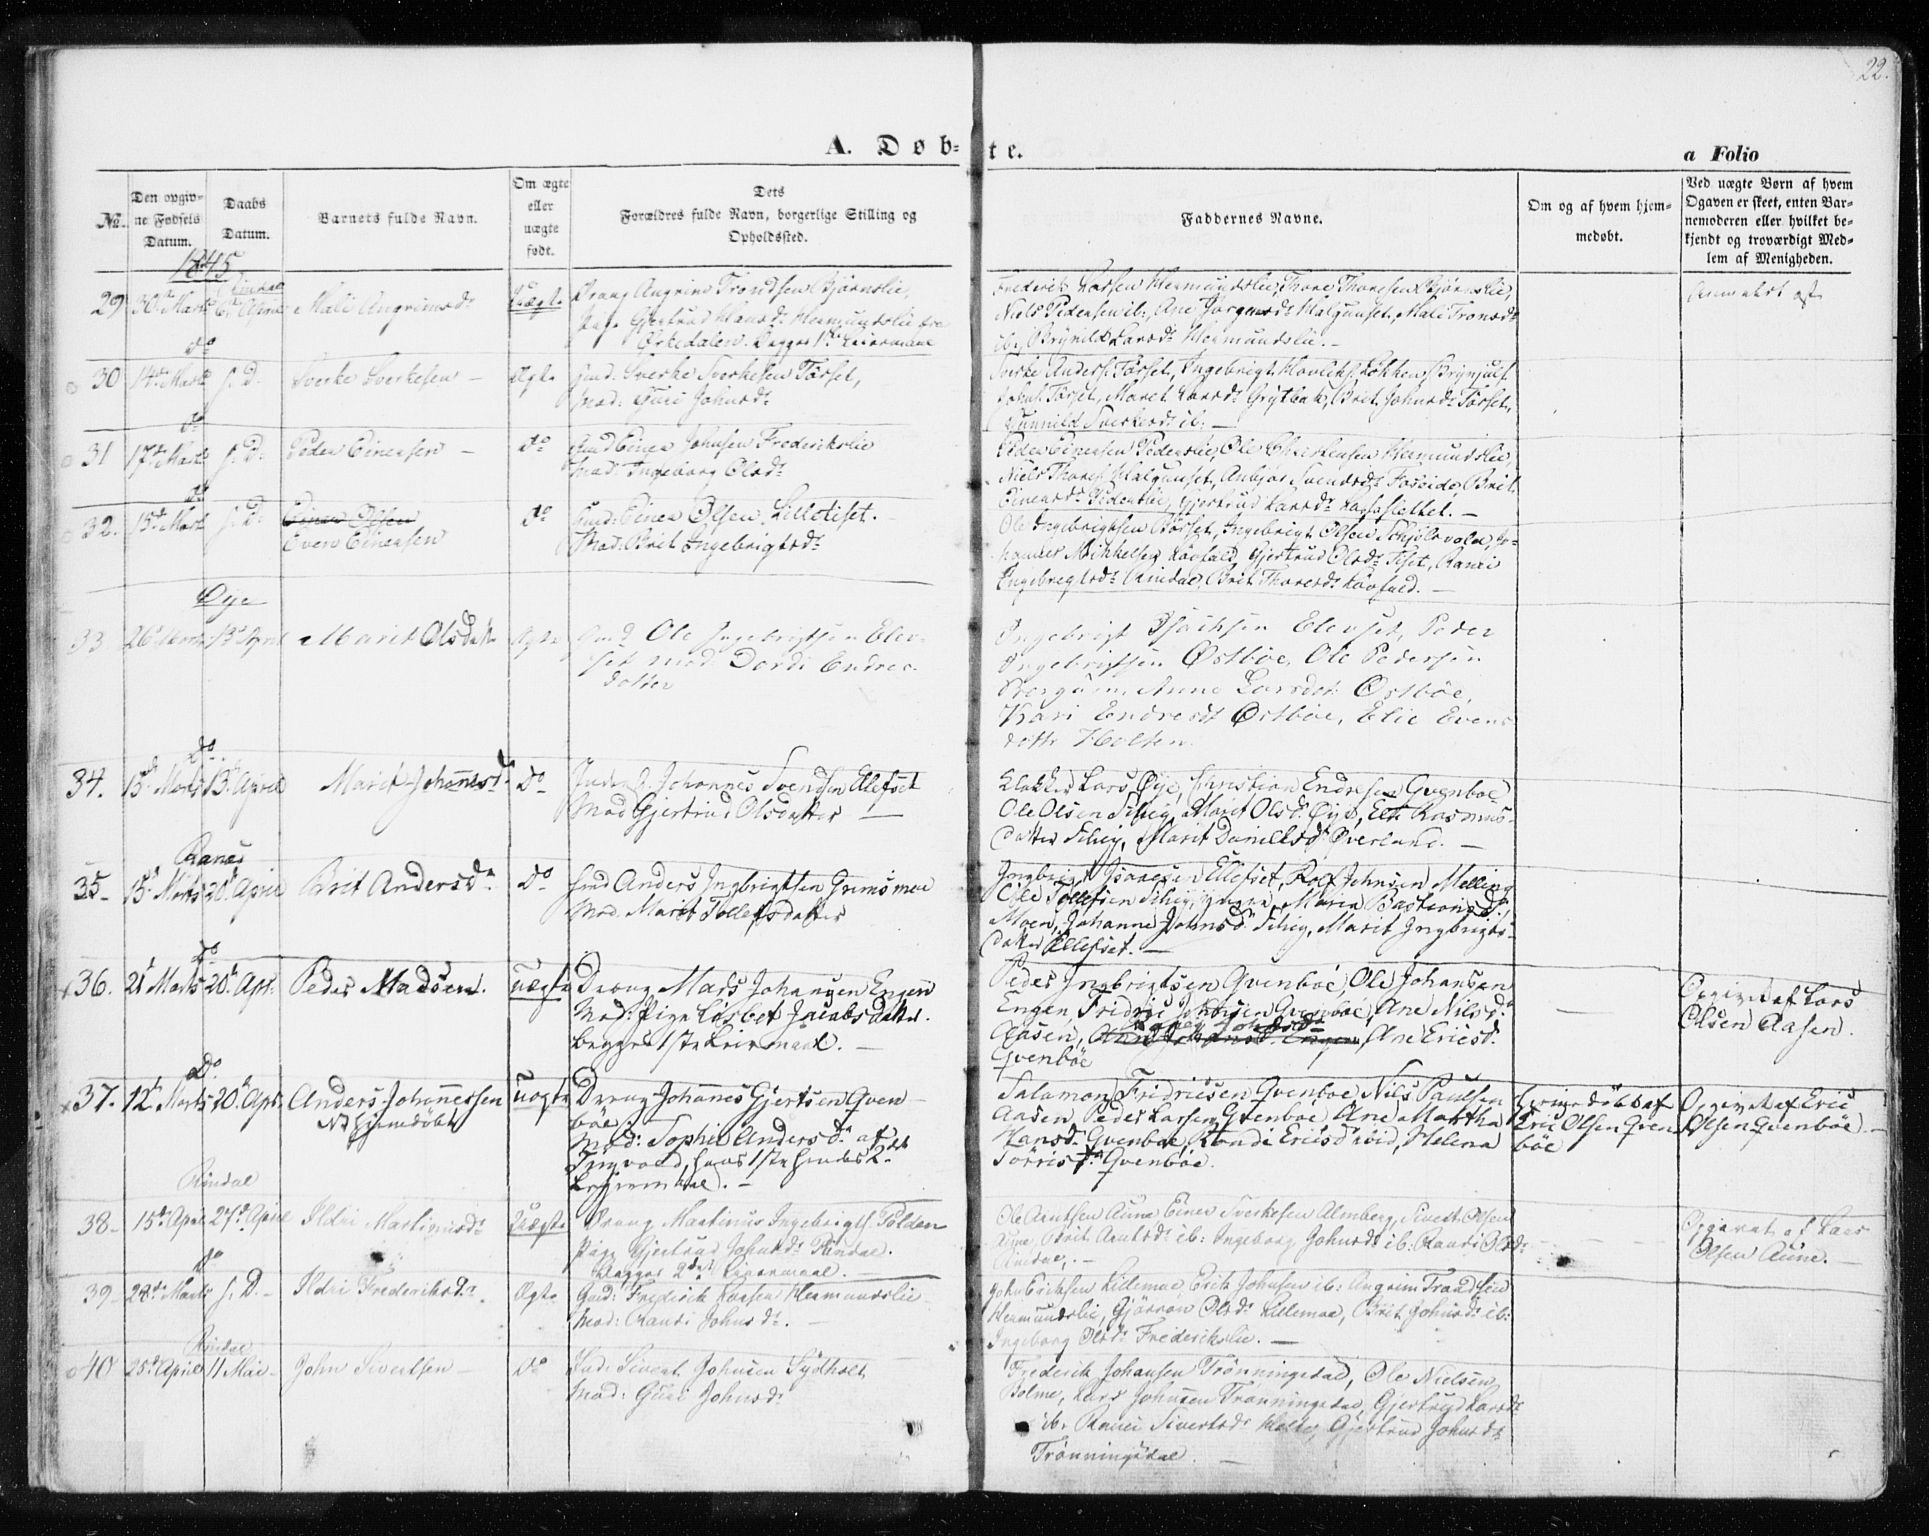 22.
A. Døb-te.
a Folio
No.
Den opgiv-
ne Fødsels
Datum.
Daabs
Datum.
Barnets fulde Navn.
Om ægte
eller
uægte
født.
Dets
Forældres fulde Navn, borgerlige Stilling og
Opholdssted.
Faddernes Navne.
Om og af hvem hjem-
medøbt.
Ved uægte Børn af hvem
Opgaven er skeet, enten Bar-
nemoderen eller hvilket be-
kjendt og troværdigt Med-
lem af Menigheden.
1845
Rindal
29 30te Marts 6te April Mali Angrimsdr
Uægte
Drang Angrim Trondsen Bjørnslie,
Pige Gjertrud Hansdr Hermundslie fra
Orkedalen. Begges 1ste Leiermaal
Frederik Larsen Hermundslie, Thore Thoresen Bjørnslie,
Niels Pedersen ib: Ane Jørgensdr Halgunset, Mali Tronsdr
ib, Brynild Larsdr Hermundslie.
Anmeldt af
do
30 14de Marts s. D. Sverke Sverkesen
Ægte
Gmd. Sverke Sverkesen Tørset,
Mod: Guri Johnsdr
Sverke Anders. Tørset, Ingebrigt Løkken, Brynjulf
Johns. Tørset, Maret Larsdr Grytbak, Brit Johnsdr Tørset,
Gunnild Sverkesdr ib:
do
31 17de Marts s. D. Peder Einersen
do
Gmd Einer Johnsen Frederikslie
Mod: Ingeborg Olsdr
Peder Einersen Pederslie, Ole Christensen Hermundslie,
Niels Thores. Halgunset, Anbjør Svendsdr, Brit
Einersdr Pederslie, Gjertrud Larsdr
do
32. 15de Marts s. D. Einer Olsen
Even Einersen
do
Gmd: Einer Olsen Lilletiset.
Mod: Brit Ingebrigtsdr
Ole Ingebrigtsen Børset, Ingebrigt Olsen Skjølsvold, Jo-
hannes Mikkelsen, Gjertrud Olsdr Tiset, Ranei
Ingebregtsdr Rindal, Brit Thoresdr
Øye
33 26de Marts 13de April Marit Olsdatter
Ægte
Gmd Ole Ingebrigtsen Elev-
set mod: Dordi Endres-
datter
Ingebrigt Elevset, Peder
Ingebrigtsen Østbøe, Ole Pedersen
Bergum, Anne Larsdr Østbøe,
Kari Endresdt Østbøe, Elie Evens
datter Holten.
do
34. 15de Marts 13de April Marit Johannesdr
Do
Johannes Svendsen Elefset
Mod Gjertrud Olsdatter
Klokker Lars Øye, Christian Endresen Gvenboe
Ole Olsen, Marit Olsdr Øye, Eli Rasmus-
datter, Marit Danielsdr Øverland.
Ranes
35 15de Marts 20de April Brit Andersdr
Do
Gmd Anders Ingbrigtsen Grimsmoe
Mod. Marit Tollefsdatter
Ingbrigt Elefset, Rolf Johnsen Melling
Ole Tollefsen, Maria Bastiansdr
Moen, Johanne Johnsdr, Marit Ingbrigts-
datter Ellefset.
Do
36. 21de Marts 20de Apr. Peder Madsen.
Uægte
Drang Mads Johansen Engen
Mod: Pige Lisbet Jacobsdatter.
begges 1ste Leiermaal.
Peder Ingbrigtsen Qvenbøe, Ole Johansen
Engen, Fridric Johnsen Qvenbøe, Ane Nilsdr
Aasen, Ane Ericsdr
Qvenbøe
Opgivet af Lars
Olsen Aasen.
Do
37. 12te Marts 20de Apr. Anders Johannessen
NB hjemdøbt
Uægte
Drang Johanes Gjertsen Qven-
bøe.
Mod: Sophie Andersdr af
Tingvold, hans 1ste hendes 2det
Leiermaal.
Salamon Fridricsen Qvenboe, Nils Paulsen
Aasen, Peder Larsen Qvenboe, Ane Martha
Hansdr Qvenboe, Ericsdr ibid, Helena
Torrisdr Qvenbøe.
hjemedøbt af
Eric Olsen Qven
bøe
Opgivet af Eric
Olsen Qvenbøe.
Rindal
38 15de April 27de April Ildri Martinusdr
Uægte
Drang Martinus Ingebrigts. Polden
Pige Gjertrud Johnsdr Rindal.
Begges 2det Leiermaal.
Ole Arntsen Aune, Einer Sverkesen Almberg, Sivert Olsen
Aune, Brit Arntsdr ib: Ingeborg Johnsdr ib: Randi Olsdr
Rindal.
Opgivet af Lars
Olsen Aune.
do
39 28de Marts s. D. Ildri Frederiksdr
Ægte
Gmd: Frederik Larsen Hermundslie
Mod: Randi Johnsdr.
John Eriksen Lillemoe, Erik Johnsen ib: Angrim Trondsen
Hermundslie, Gjøron Olsdr Lillemoe, Brit Johnsdr ib:
Ingeborg Olsdr Frederikslie.
Rindal
40 25de April 11 Mai John Sivertsen
do
Ind: Sivert Johnsen Sydholt
Mod: Guri Johnsdr
Frederik Johansen Trønningsdal, Ole Nielsen
Bolme, Lars Johnsen Trønningsdal, Gjertrud Larsdr
ib. Ranei Sivertsdr, Gjertrud Johnsdr
Trønningsdal.